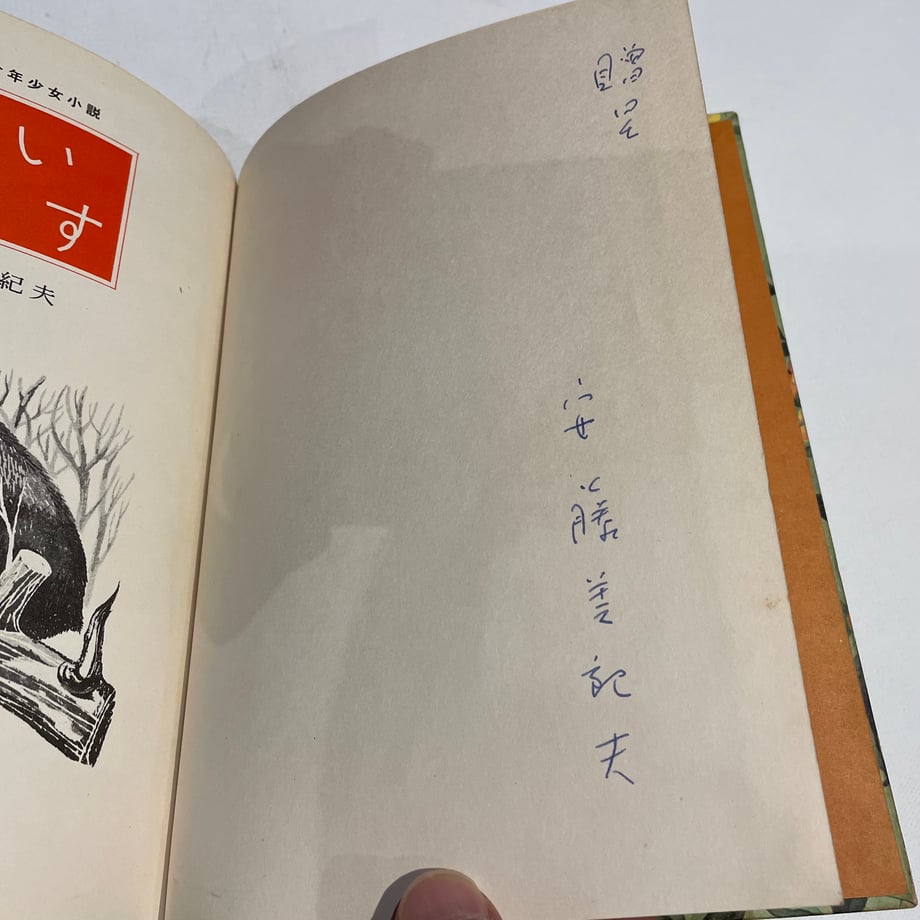 年少女小説
い
す
紀夫
贈呈
安藤美紀夫